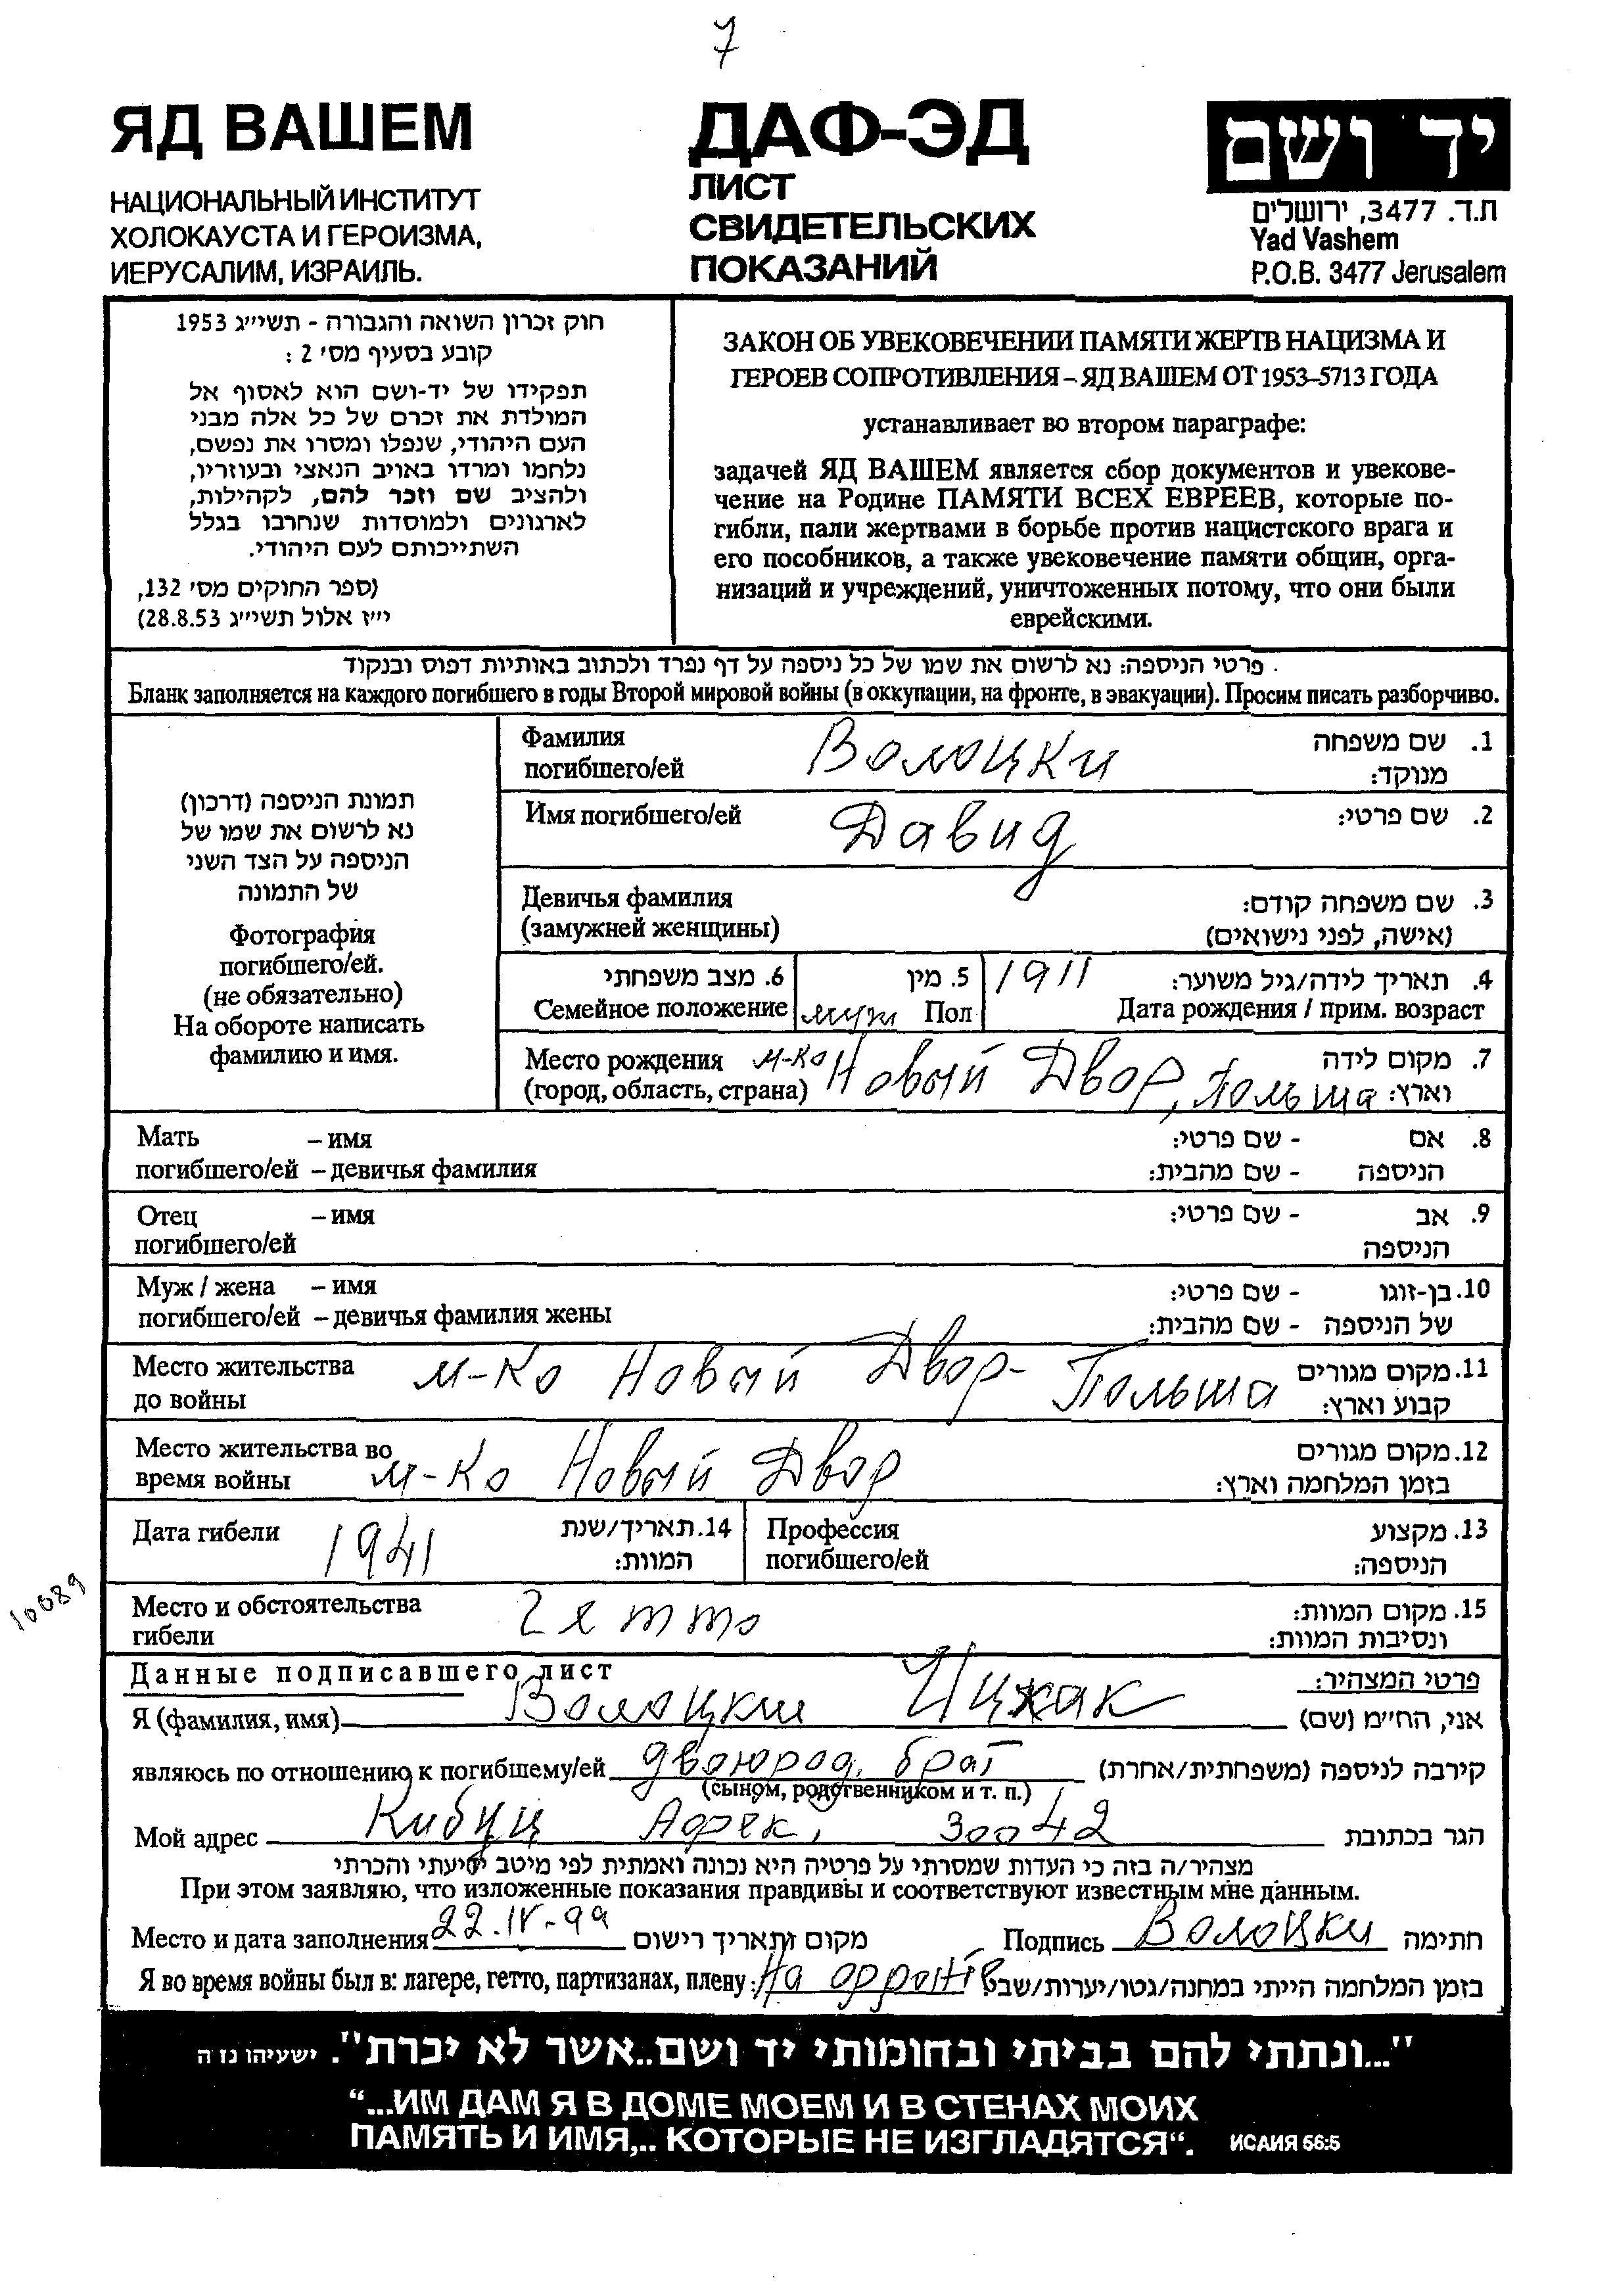 7
ЯД ВАШЕМ
НАЦИОНАЛЬНЫЙ ИНСТИТУТ
ХОЛОКАУСТА И ГЕРОИЗМА,
ИЕРУСАЛИМ, ИЗРАИЛЬ.
ДАФ-ЭД
ЛИСТ
СВИДЕТЕЛЬСКИХ
ПОКАЗАНИЙ
יד ושם
ת.ד. 3477, ירושלים
Yad Vashem
P.O.B. 3477 Jerusalem
חוק זכרון השואה והגבורה - תשי״ג 1953
קובע בסעיף מס׳ 2 :
תפקידו של יד-ושם הוא לאסוף אל
המולדת את זכרם של כל אלה מבני
העם היהודי, שנפלו ומסרו את נפשם,
נלחמו ומרדו באויב הנאצי ובעוזריו,
ולהציב שם וזכר להם, לקהילות,
לארגונים ולמוסדות שנחרבו בגלל
השתייכותם לעם היהודי.
(ספר החוקים מס׳ 132,
י״ז אלול תשי״ג 28.8.53)
ЗАКОН ОБ УВЕКОВЕЧЕНИИ ПАМЯТИ ЖЕРТВ НАЦИЗМА И
ГЕРОЕВ СОПРОТИВЛЕНИЯ – ЯД ВАШЕМ ОТ 1953–5713 ГОДА
устанавливает во втором параграфе:
задачей ЯД ВАШЕМ является сбор документов и увекове-
чение на Родине ПАМЯТИ ВСЕХ ЕВРЕЕВ, которые по-
гибли, пали жертвами в борьбе против нацистского врага и
его пособников, а также увековечение памяти общин, орга-
низаций и учреждений, уничтоженных потому, что они были
еврейскими.
פרטי הניספה: נא לרשום את שמו של כל ניספה על דף נפרד ולכתוב באותיות דפוס ובנקוד
Бланк заполняется на каждого погибшего в годы Второй мировой войны (в оккупации, на фронте, в эвакуации). Просим писать разборчиво.
תמונת הניספה (דרכון)
נא לרשום את שמו של
הניספה על הצד השני
של התמונה
Фотография
погибшего/ей.
(не обязательно)
На обороте написать
фамилию и имя.
Фамилия Волоцки 1. שם משפחה
погибшего/ей מנוקד:
Имя погибшего/ей Давид 2. שם פרטי:
Девичья фамилия 3. שם משפחה קודם:
(замужней женщины) (אישה, לפני נישואים)
6. מצב משפחתי 5. מין 1911 4. תאריך לידה/גיל משוער:
Семейное положение муж Пол Дата рождения / прим. возраст
Место рождения м-ко Новый Двор, Польша 7. מקום לידה
(город, область, страна) וארץ:
Мать – имя - שם פרטי: 8. אם
погибшего/ей – девичья фамилия - שם מהבית: הניספה
Отец – имя - שם פרטי: 9. אב
погибшего/ей הניספה
Муж / жена – имя - שם פרטי: 10. בן-זוגו
погибшего/ей – девичья фамилия жены - שם מהבית: של הניספה
Место жительства м-ко Новый Двор - Польша 11. מקום מגורים
до войны קבוע וארץ:
Место жительства во 12. מקום מגורים
время войны м-ко Новый Двор בזמן המלחמה וארץ:
Дата гибели 1941 14. תאריך/שנת Профессия 13. מקצוע
המוות: погибшего/ей הניספה:
10689
Место и обстоятельства гетто 15. מקום המוות:
гибели ונסיבות המוות:
Данные подписавшего лист פרטי המצהיר:
Я (фамилия, имя) Волоцки Ицжак אני, החי״מ (שם)
являюсь по отношению к погибшему/ей двоюрод. брат קירבה לניספה (משפחתית/אחרת)
(сыном, родственником и т. п.)
Мой адрес Кибуц Афек, 30042 הגר בכתובת
מצהיר/ה בזה כי העדות שמסרתי על פרטיה היא נכונה ואמתית לפי מיטב ידיעתי והכרתי
При этом заявляю, что изложенные показания правдивы и соответствуют известным мне данным.
Место и дата заполнения 22.IV-99 מקום ותאריך רישום Подпись Волоцки חתימה
Я во время войны был в: лагере, гетто, партизанах, плену: На фронте בזמן המלחמה הייתי במחנה/גטו/יערות/שבט
"...ונתתי להם בביתי ובחומותי יד ושם..אשר לא יכרת". ישעיהו נז ה
“...ИМ ДАМ Я В ДОМЕ МОЕМ И В СТЕНАХ МОИХ
ПАМЯТЬ И ИМЯ,.. КОТОРЫЕ НЕ ИЗГЛАДЯТСЯ“. ИСАИЯ 56:5